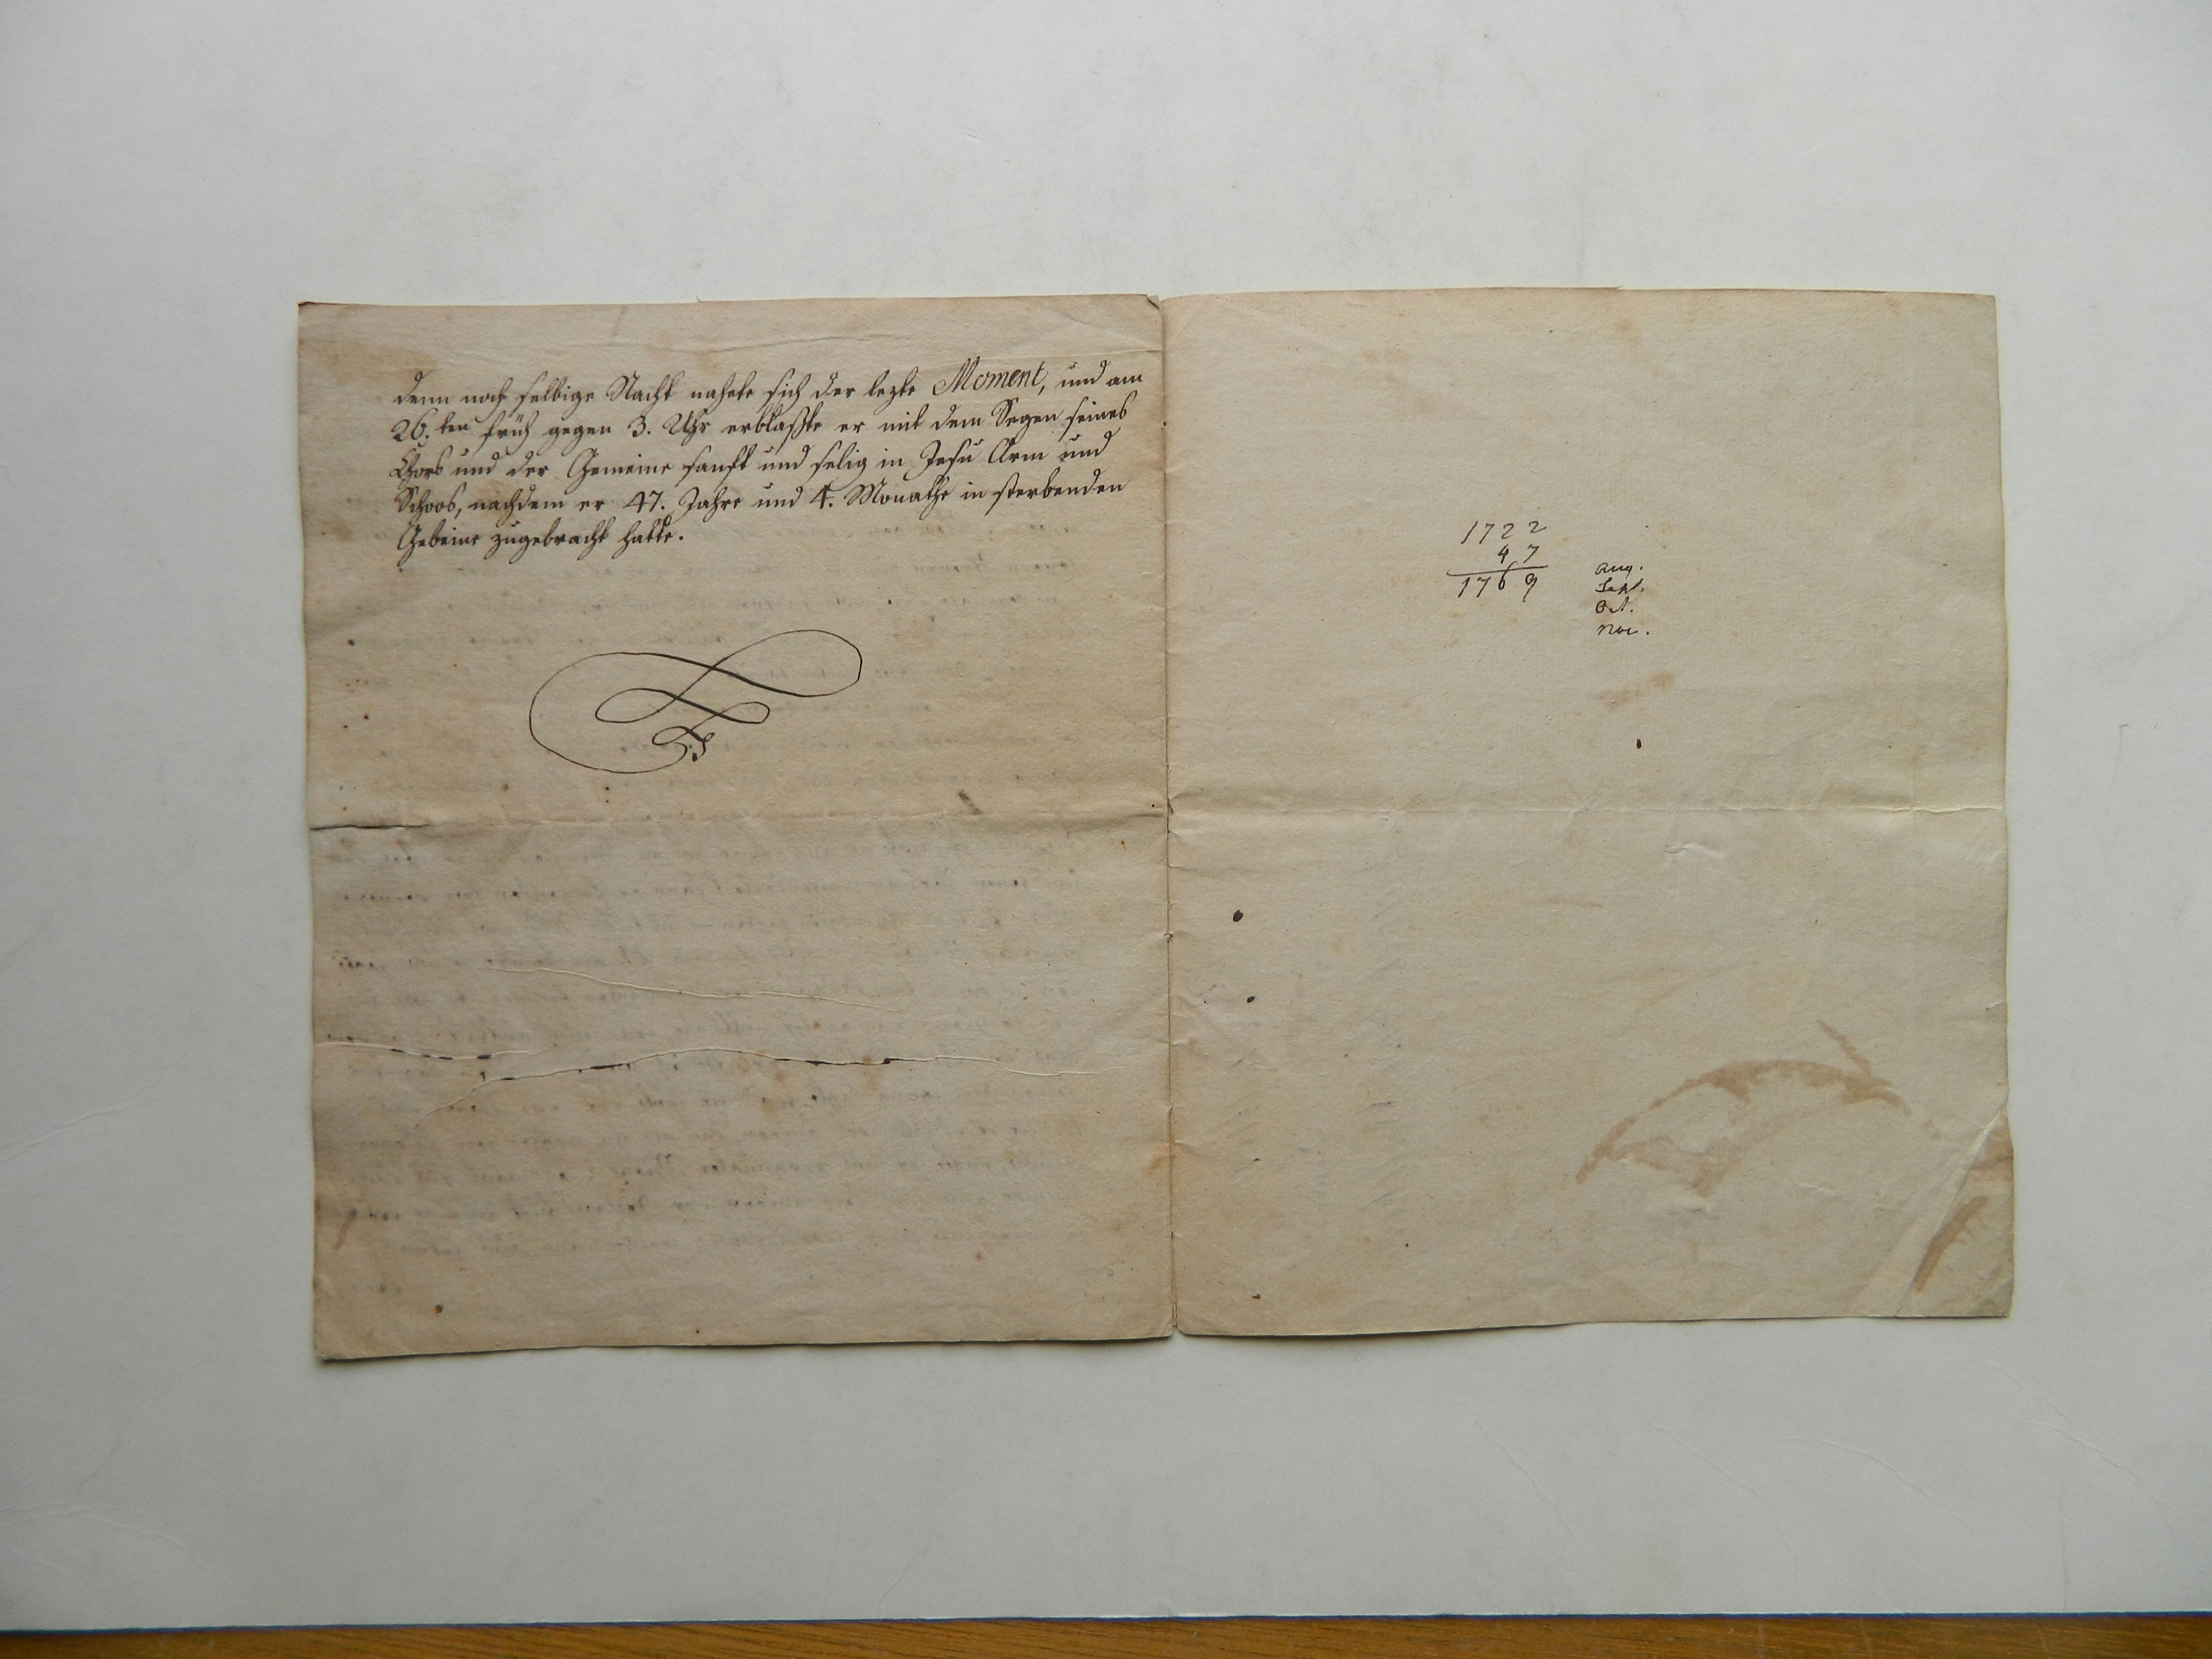 denn noch selbige Nacht nahete sich der lezte Moment, und am
26.ten früh gegen 3. Uhr erblaßte er mit dem Segen seines
Chors und der Gemeine sanft und selig in Jesu Arm und
Schoos, nachdem er 47. Jahre und 4. Monathe in sterbenden
Gebeine zugebracht hatte.
1722
47
1769
Aug.
Sept.
Oct.
Nov.